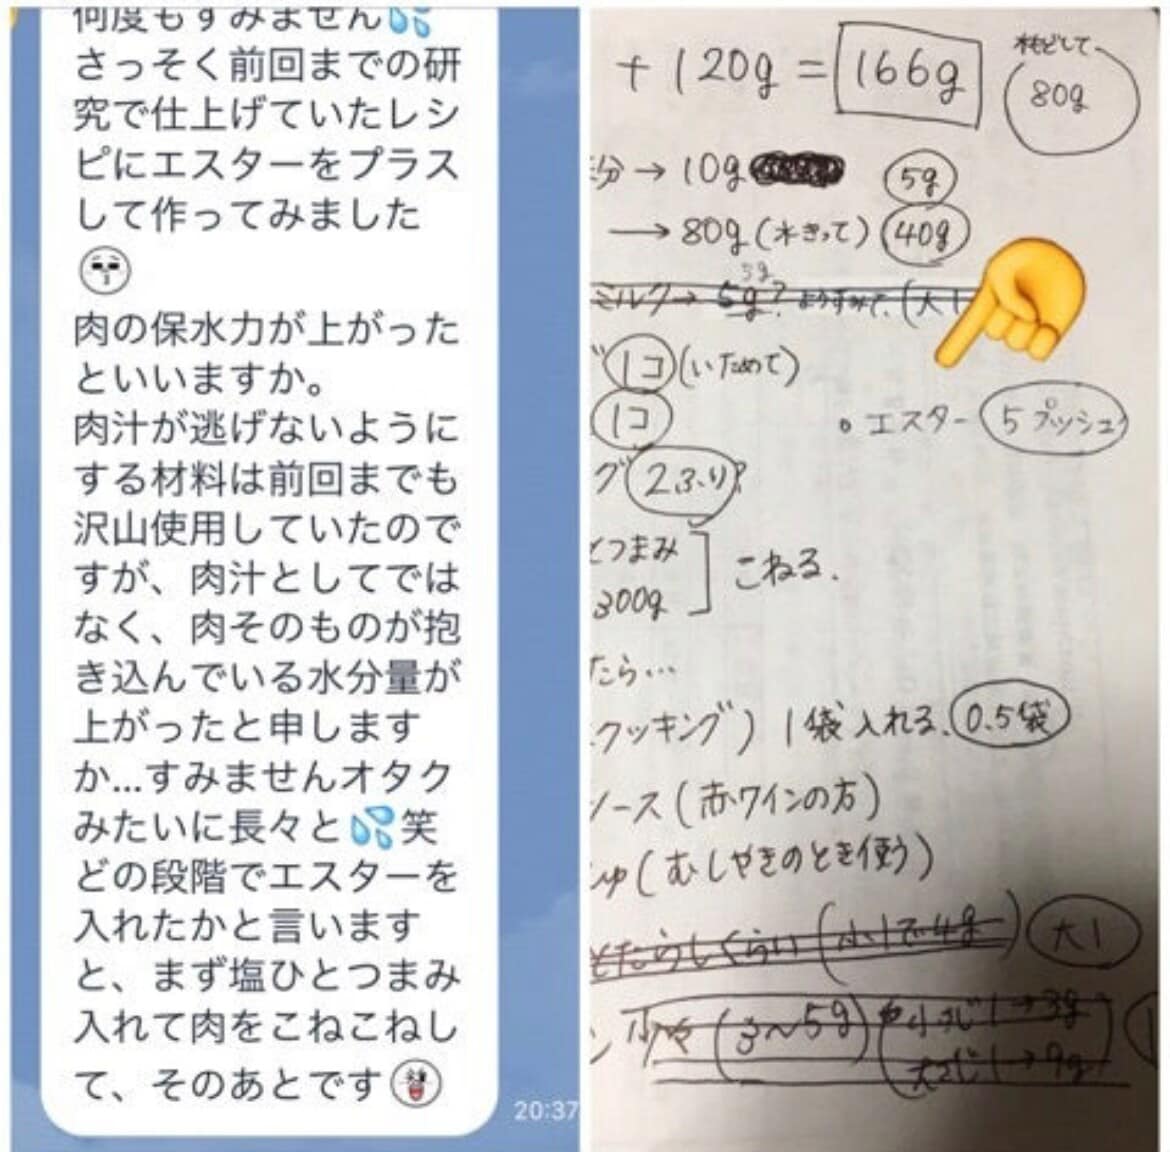 何度もすみません💦
さっそく前回までの研
究で仕上げていたレシ
ピにエスターをプラス
して作ってみました
肉の保水力が上がった
といいますか。
肉汁が逃げないように
する材料は前回までも
沢山使用していたので
すが、肉汁としてでは
なく、肉そのものが抱
き込んでいる水分量が
上がったと申します
か…すみませんオタク
みたいに長々と💦笑
どの段階でエスターを
入れたかと言います
と、まず塩ひとつまみ
入れて肉をこねこねし
て、そのあとです
20:37
+ 120g = 166g
水もどして
80g
分 → 10g 5g
→ 80g (水きって) 40g
5g
ミルク→ 5g? (大1
1コ (いためて)
1コ
・エスター 5プッシュ
グ 2ふり?
とつまみ
300g
こねる.
たら…
クッキング) 1袋入れる. 0.5袋
ソース (赤ワインの方)
しゅ (むしやきのとき使う)
くらい (小1で4g) 大1
少々 (3〜5g) 小さじ1→3g
大さじ1→9g